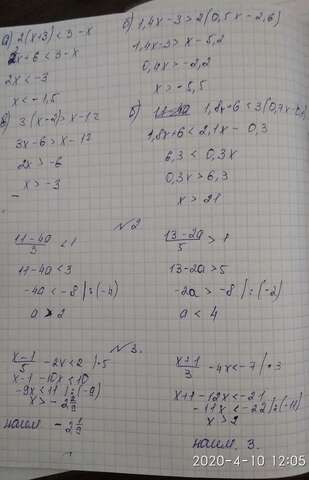 а) 2(x+3) < 3-x
2x+6 < 3-x
2x < -3
x < -1,5
б) 1,4x-3 > 2(0,5x-2,6)
1,4x-3 > x-5,2
0,4x > -2,2
x > -5,5
в) 3(x-2) > x-12
3x-6 > x-12
2x > -6
x > -3
б) 1,8x+6 < 3(0,7x-0,1)
1,8x+6 < 2,1x - 0,3
6,3 < 0,3x
0,3x > 6,3
x > 21
№2
11-4a/3 < 1
11-4a < 3
-4a < -8 |:(-4)
a > 2
13-2a/5 > 1
13-2a > 5
-2a > -8 |:(-2)
a < 4
№3.
x-1/5 - 2x < 2 |·5
x-1-10x < 10
-9x < 11 |:(-9)
x > -2/9
наим. - 2 1/9
x+1/3 - 4x < -7 |·3
x+1-12x < -21
-11x < -22 |:(-11)
x > 2
наим. 3.
2020-4-10 12:05